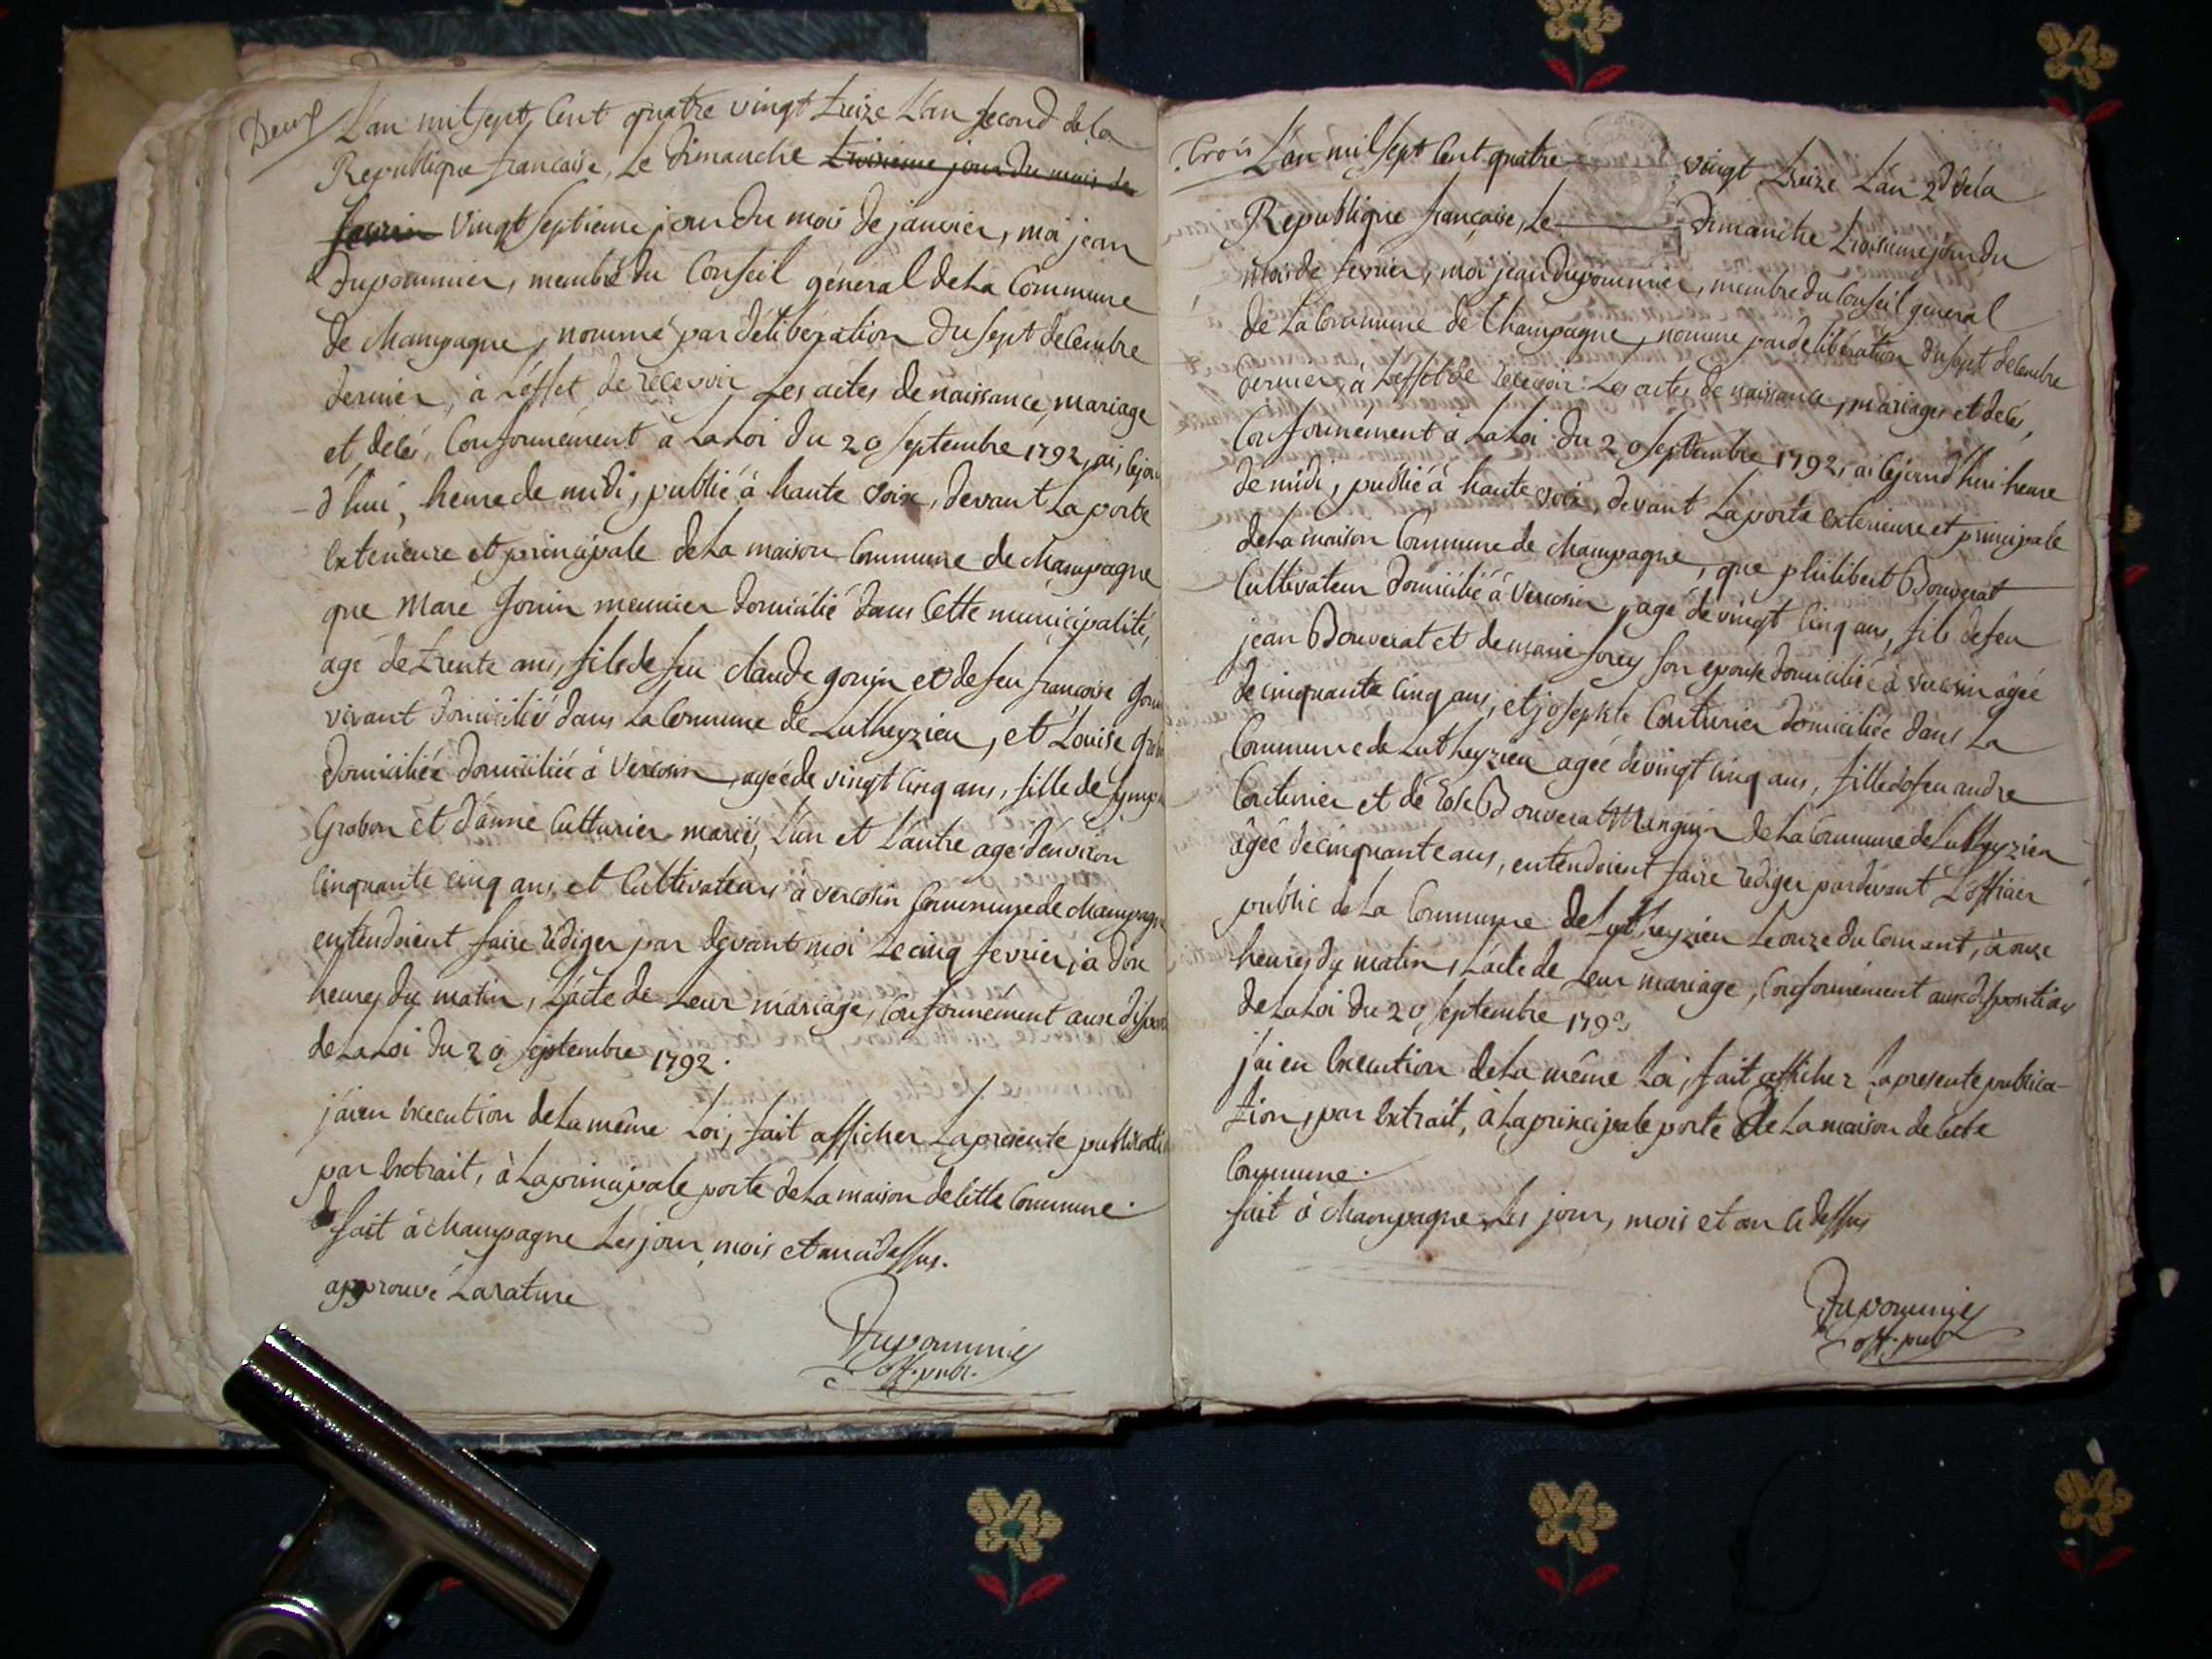 Deux
L'an mil sept Cent quatre vingt treize L'an second de la
Republique francaise, Le Dimanche troisieme jour du mois de
fevrier vingt septieme jour du mois de janvier, moi jean
Dupommier, membre du Conseil géneral de La Commune
de Champagne, nommé par déliberation du sept decembre
dernier, à L'effet de recevoir Les actes de naissance, mariage
et décés, Conformément à La Loi du 20 septembre 1792, ai, cejour
-d'hui, heure de midi, publié à haute voix, devant La porte
exterieure et principale de La maison Commune de Champagne
que Marc Gonin meunier domicilié dans Cette municipalité,
agé de trente ans, fils de feu Claude gonin et de feu francoise
vivant domiciliés dans La Commune de Lutheyzieu, et Louise
domiciliée domiciliée à Vercosin, agée de vingt cinq ans, fille de
Grobon et d'anne Cutturier mariés, L'un et L'autre agé d'environ
Cinquante cinq ans, et Cultivateurs à vercosin Commune de Champagne
entendoient faire rédiger par devant moi Le cinq fevrier, à
heures du matin, L'acte de Leur mariage, Conformément aux
de La Loi du 20 septembre 1792.
j'ai en execution de La même Loi, fait afficher La presente
par extrait, à La principale porte de La maison de Cette Commune.
fait à Champagne Les jour, mois et an ci dessus.
approuvé La rature
Dupommier
off. publ.
Trois
L'an mil sept Cent quatre vingt treize L'an 2d de la
Republique francaise, Le Dimanche troisieme jour du
mois de fevrier, moi jean Dupommier, membre du Conseil géneral
de La Commune de Champagne, nommé par déliberation du sept decembre
dernier, à L'effet de recevoir Les actes de naissance, mariages et décés,
Conformément à La Loi du 20 septembre 1792, ai cejourd'hui heure
de midi, publié à haute voix, devant La porte exterieure et principale
de La maison Commune de Champagne, que philibert Bouverat
Cultivateur domicilié à Vercosin, agé de vingt Cinq ans, fils de feu
jean Bouverat et de marie forey son epouse domiciliée à vercosin âgée
de cinquante Cinq ans, et josephte Couturier domiciliée dans La
Commune de Lutheyzieu agée de vingt Cinq ans, fille de feu andre
Couturier et de Rose Bouverat Manguin de La Commune de Lutheyzieu
âgée de cinquante ans, entendoient faire rédiger pardevant L'officier
public de La Commune de Lutheyzieu Le onze du Courant, à onze
heures du matin, L'acte de Leur mariage, Conformément aux dispositions
de La Loi du 20 septembre 1792.
j'ai en execution de La même Loi, fait afficher La presente publica-
tion, par extrait, à La principale porte de La maison de Cette
Commune.
fait à Champagne Les jour, mois et an ci dessus
Dupommier
off. pub